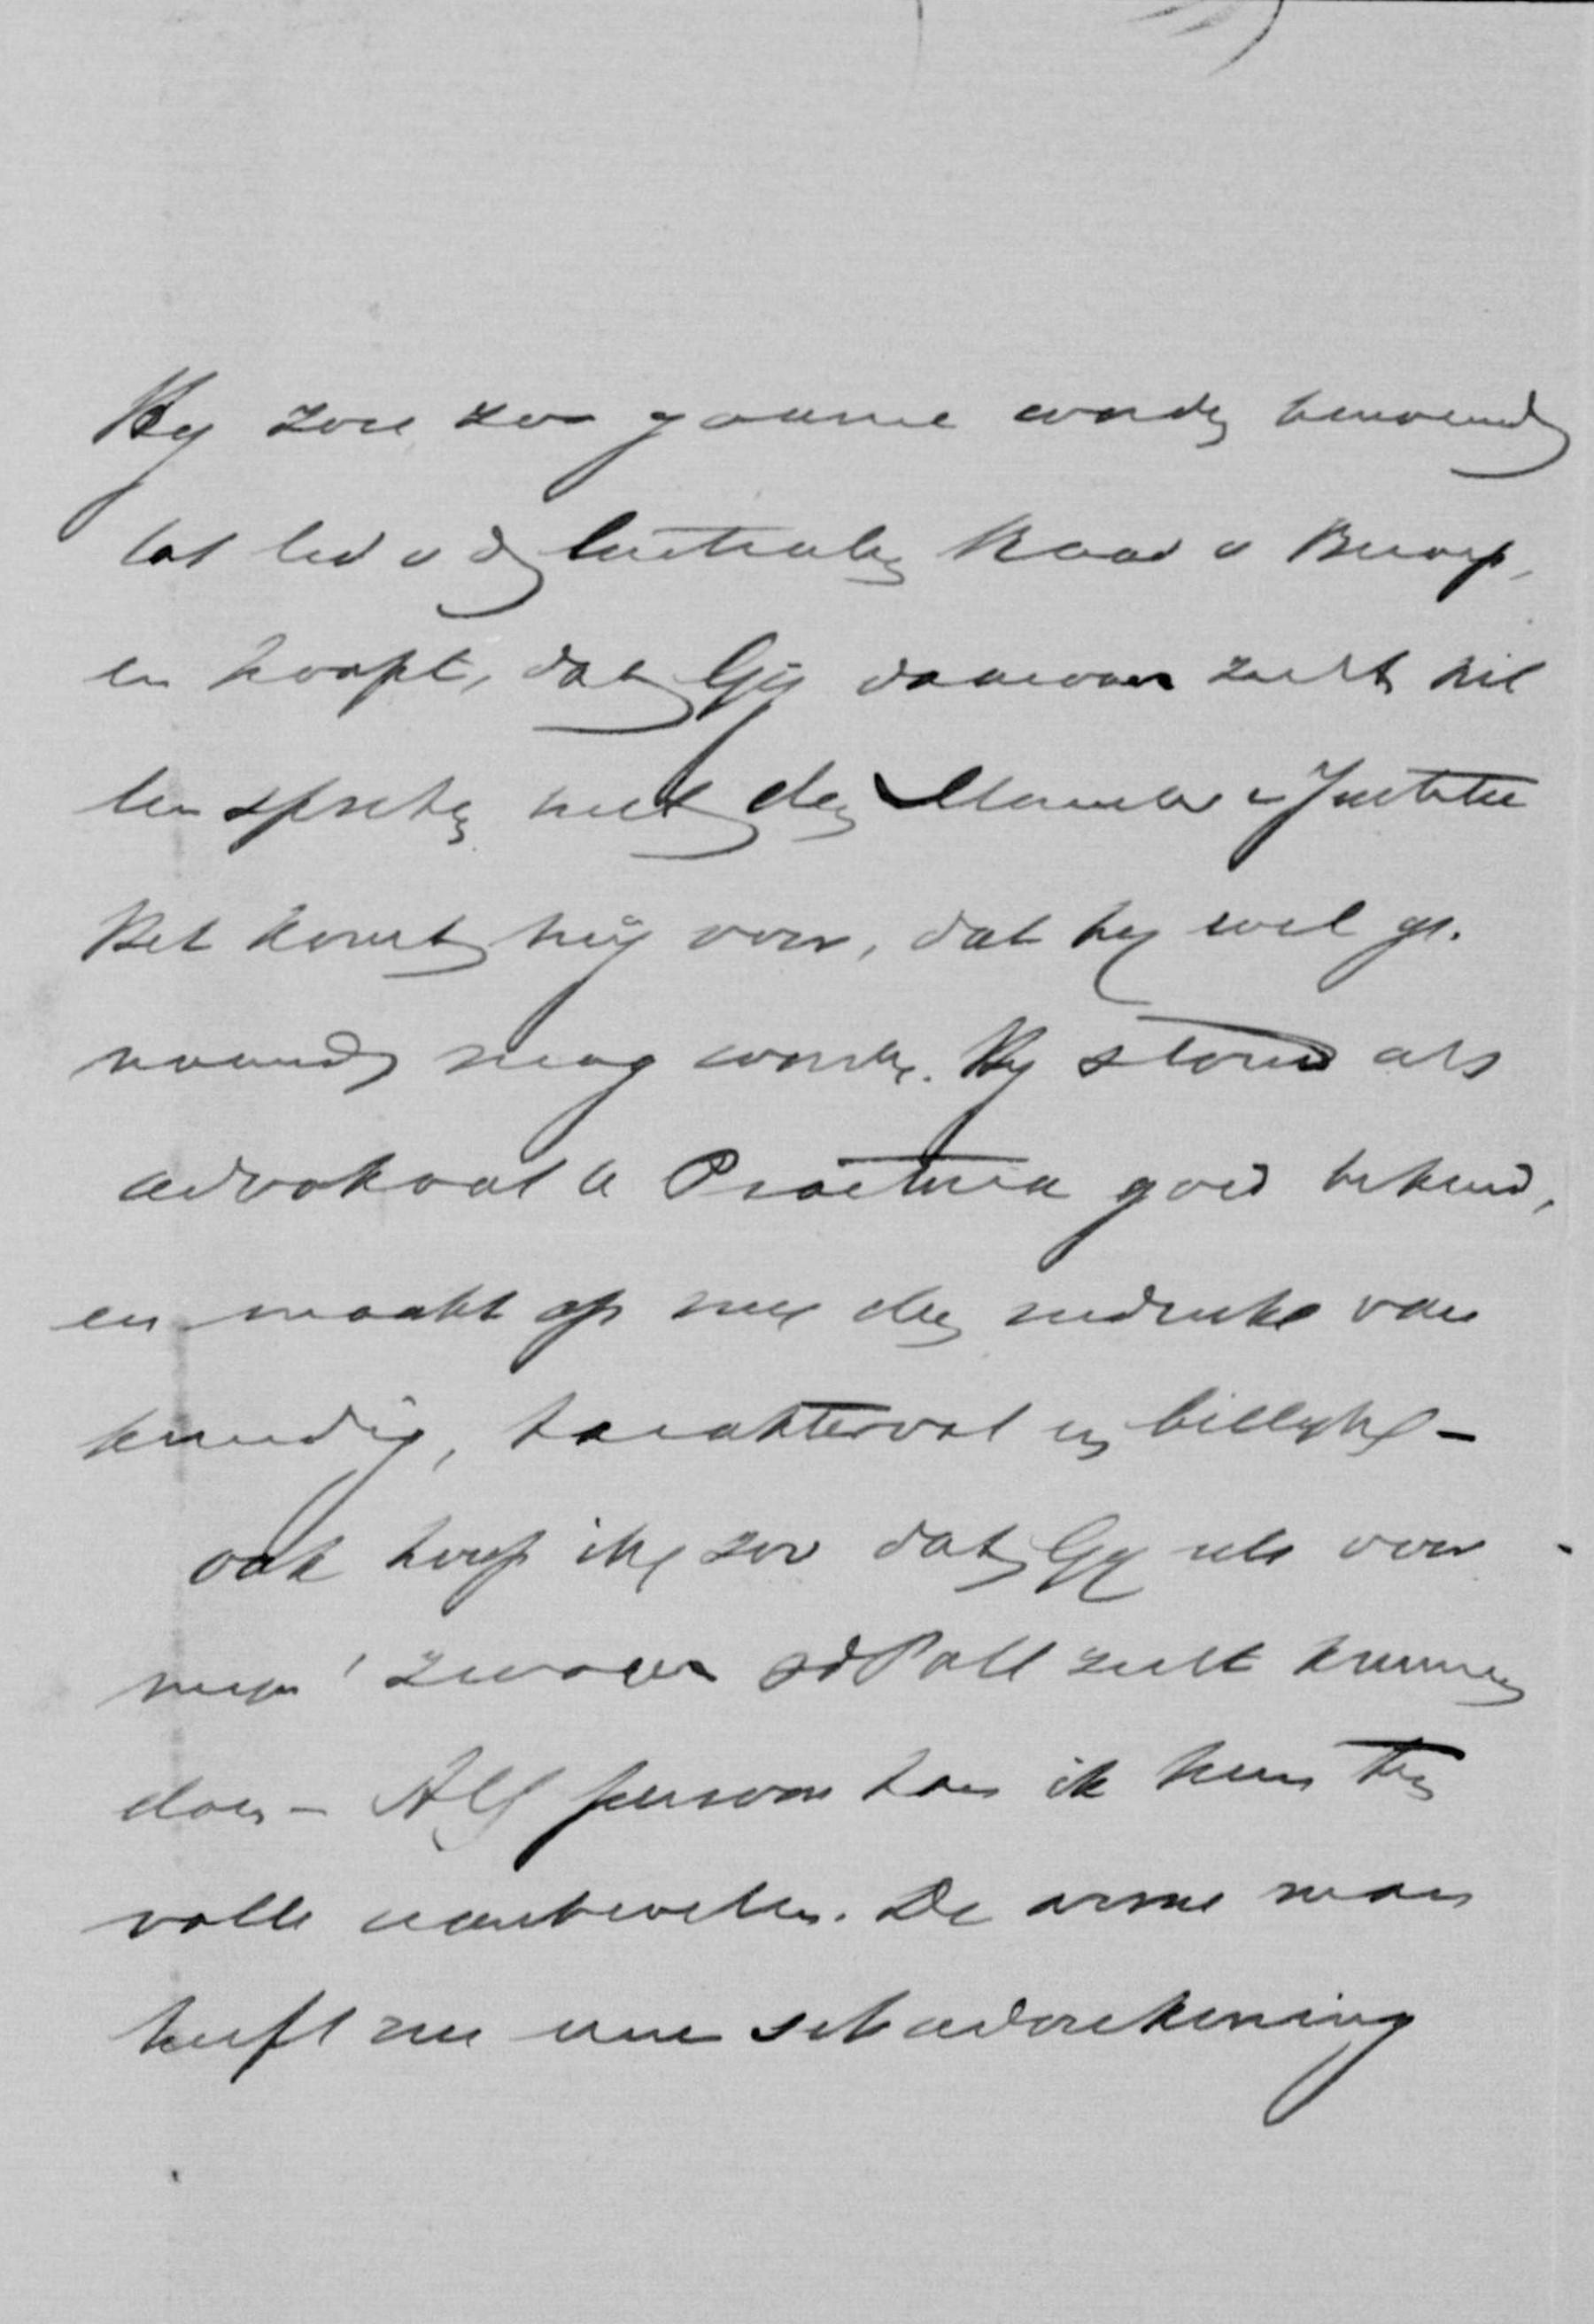 Hij zou zoo gaarne worden benoemd
tot lid v d Centralen Raad v Beroep,
en hoopt, dat Gij daarover zult wil
len spreken met den Minister v Justitie
Het komt mij voor, dat hij wel ge-
noemd mag worden. Hij stond als
advokaat te Pretoria goed bekend,
en maakt op mij den indruk van
kundig, karaktervol en billijk –
ook hoop ik zoo dat Gij iets voor
mijn zwager v d Poll zult kunnen
doen – Als persoon kan ik hem ten
volle aanbevelen. De arme man
heeft nu eene schaderekening